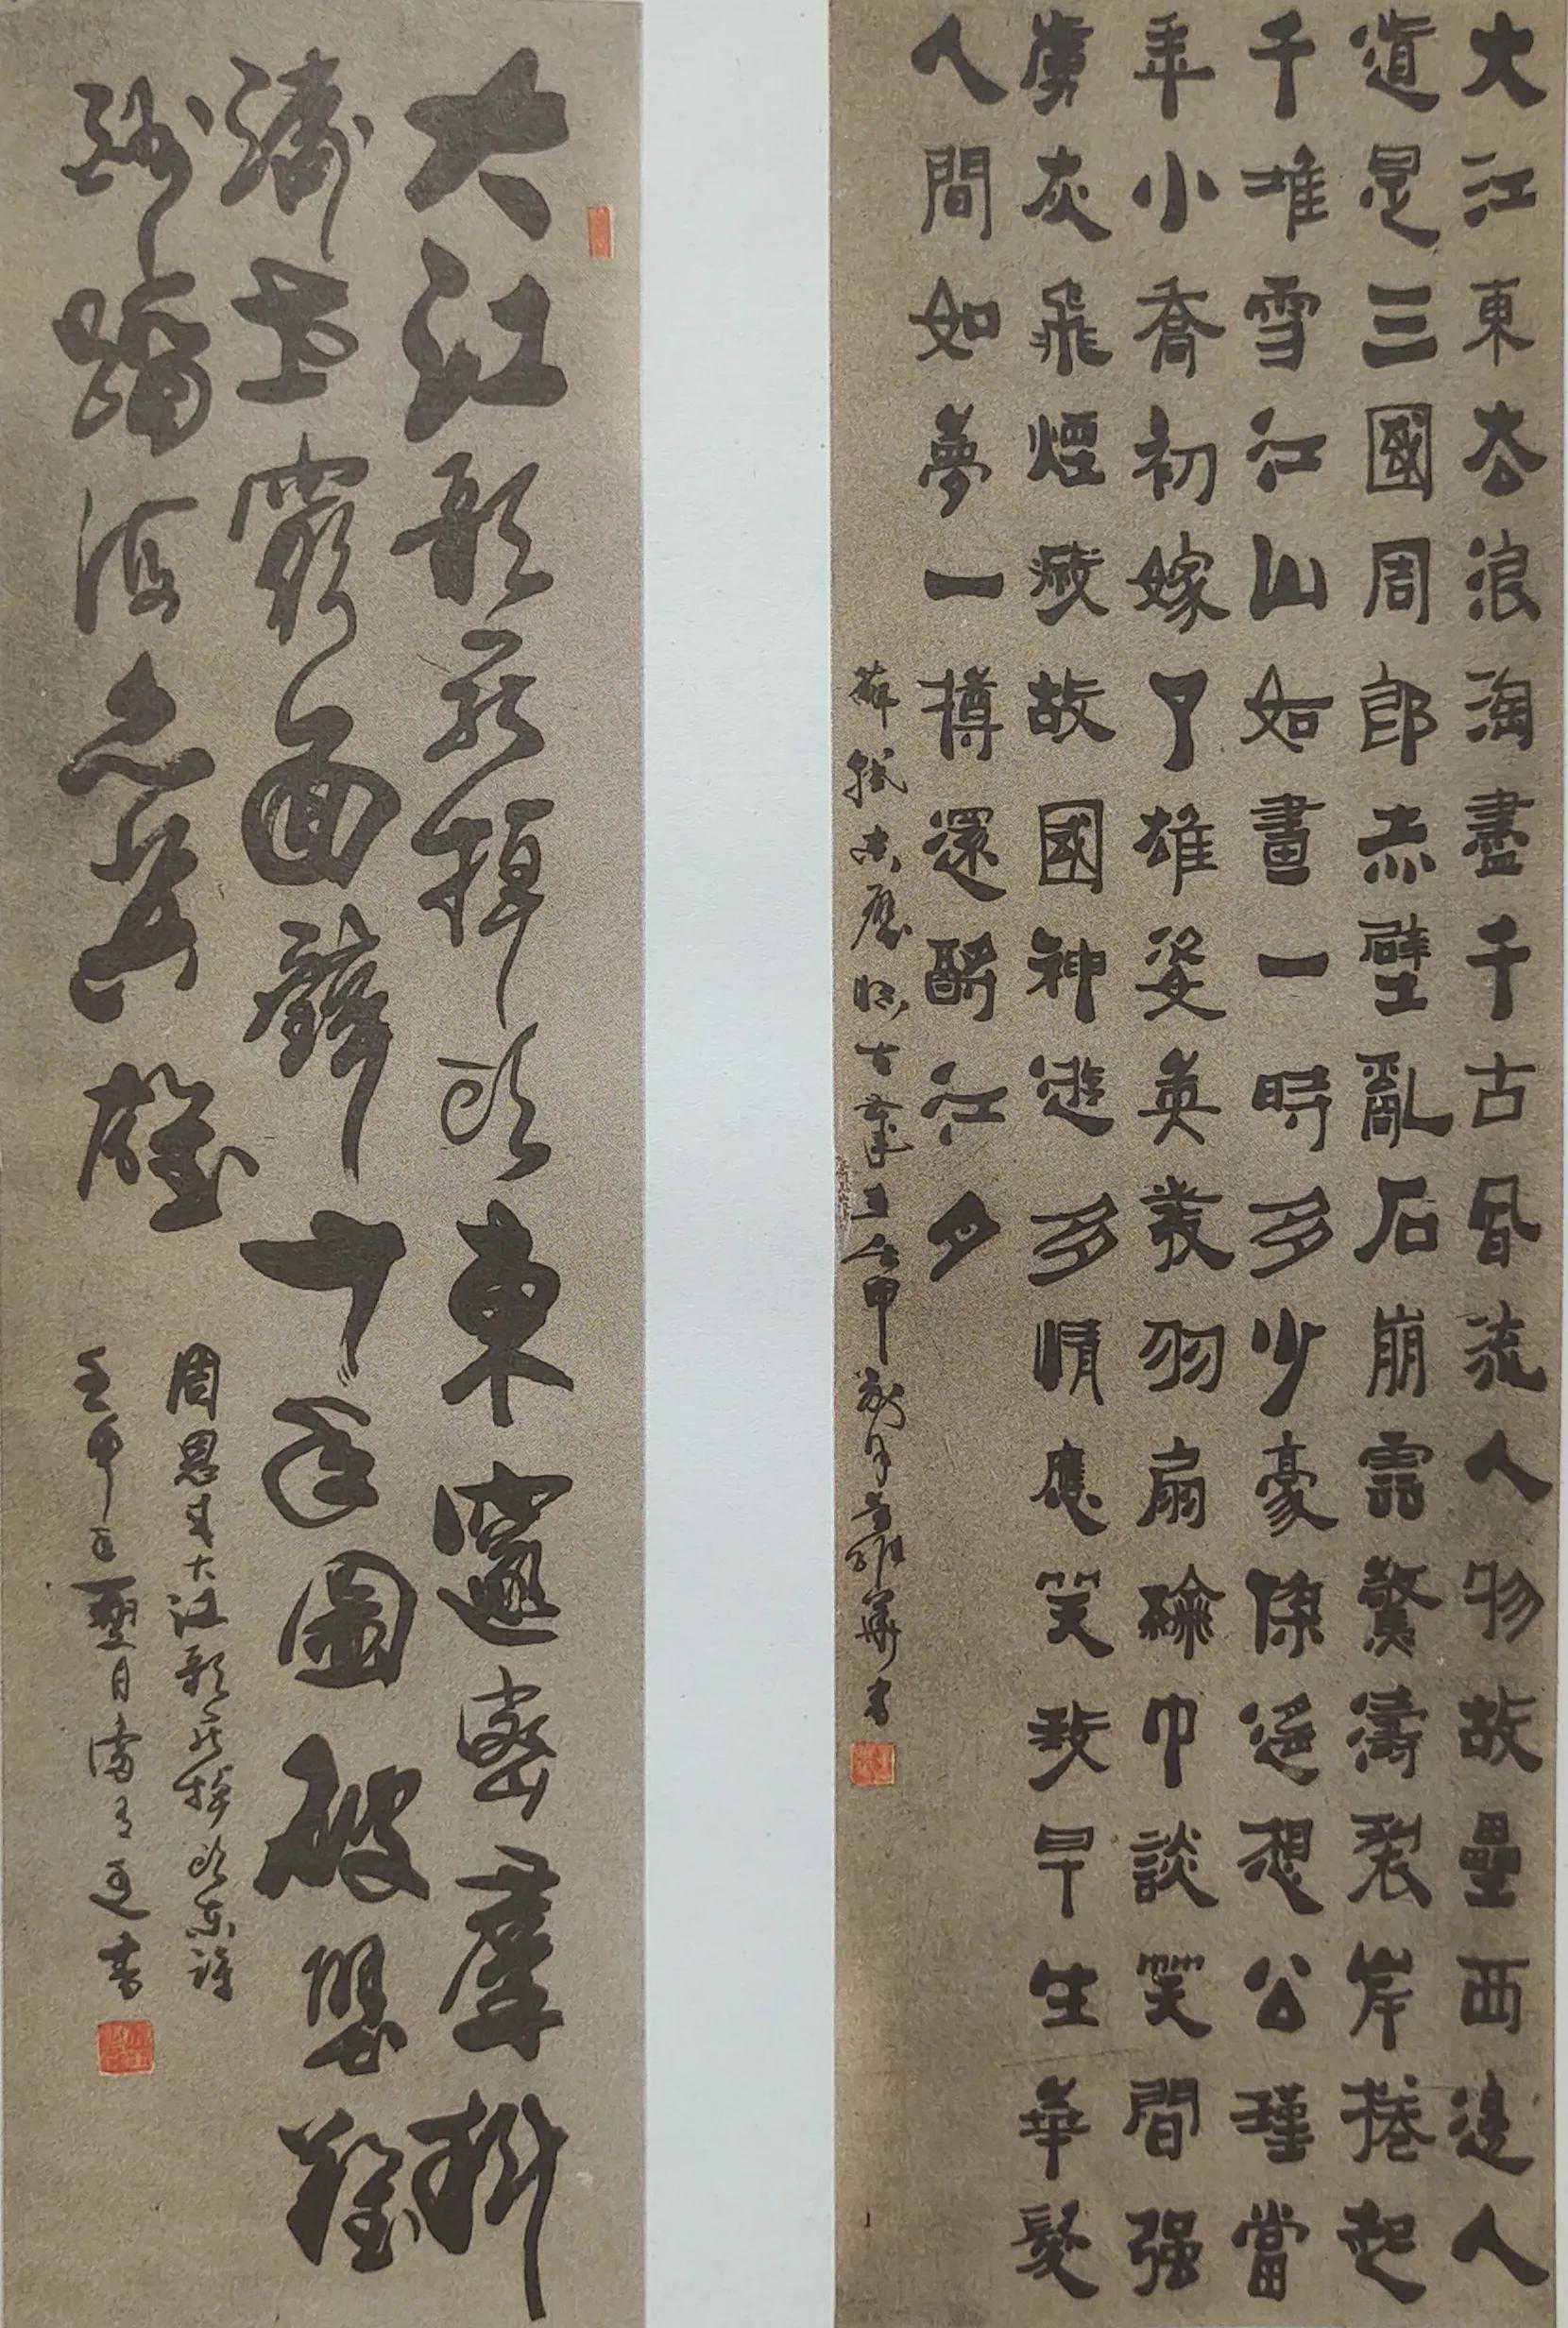 大江東去浪淘盡千古風流人物故壘西邊人
道是三國周郎赤壁亂石崩雲驚濤裂岸捲起
千堆雪江山如畫一時多少豪傑遥想公瑾當
年小喬初嫁了雄姿英發羽扇綸巾談笑間强
虜灰飛煙滅故國神遊多情應笑我早生華髮
人間如夢一樽還酹江月
蘇軾赤壁懷古 壬申秋月 華書
大江歌罷掉頭東邃密羣科
濟世窮面壁十年圖破壁難
酬蹈海亦英雄
周恩来大江歌罷掉頭東詩
壬申 月 書